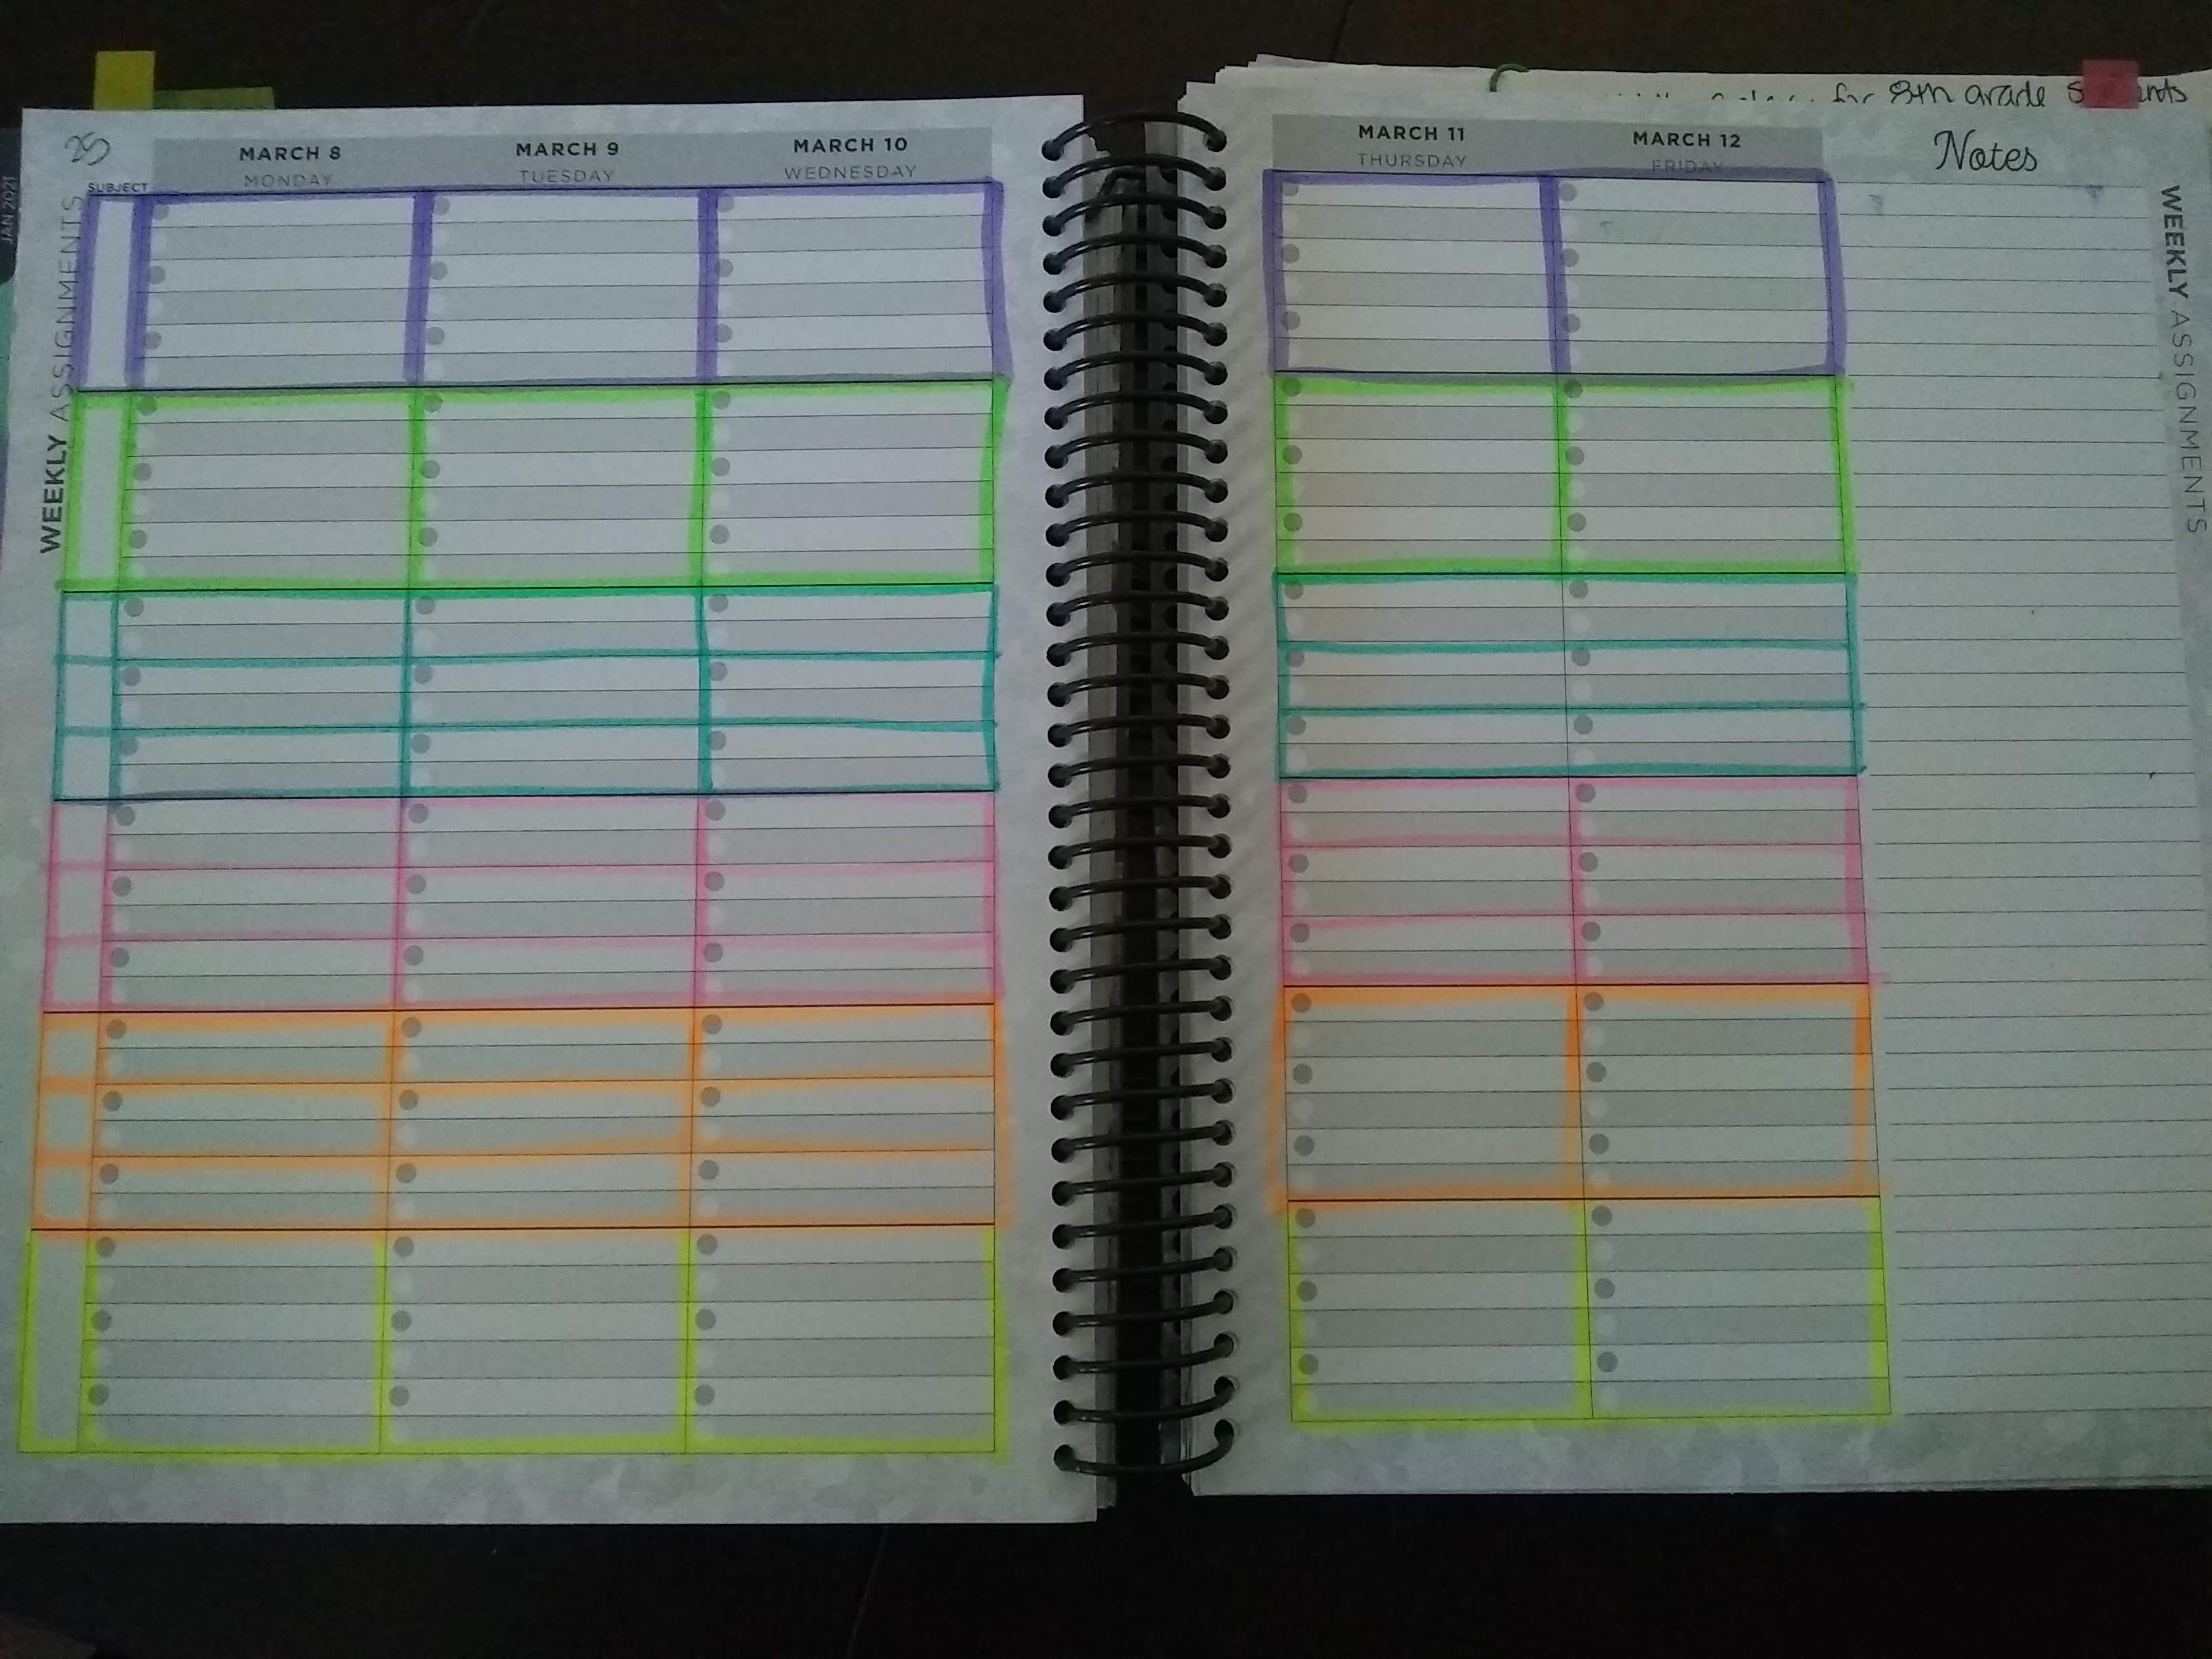 for 8th grade
25
MARCH 8
MONDAY
MARCH 9
TUESDAY
MARCH 10
WEDNESDAY
MARCH 11
THURSDAY
MARCH 12
FRIDAY
Notes
SUBJECT
JAN 2021
WEEKLY ASSIGNMENTS
WEEKLY ASSIGNMENTS